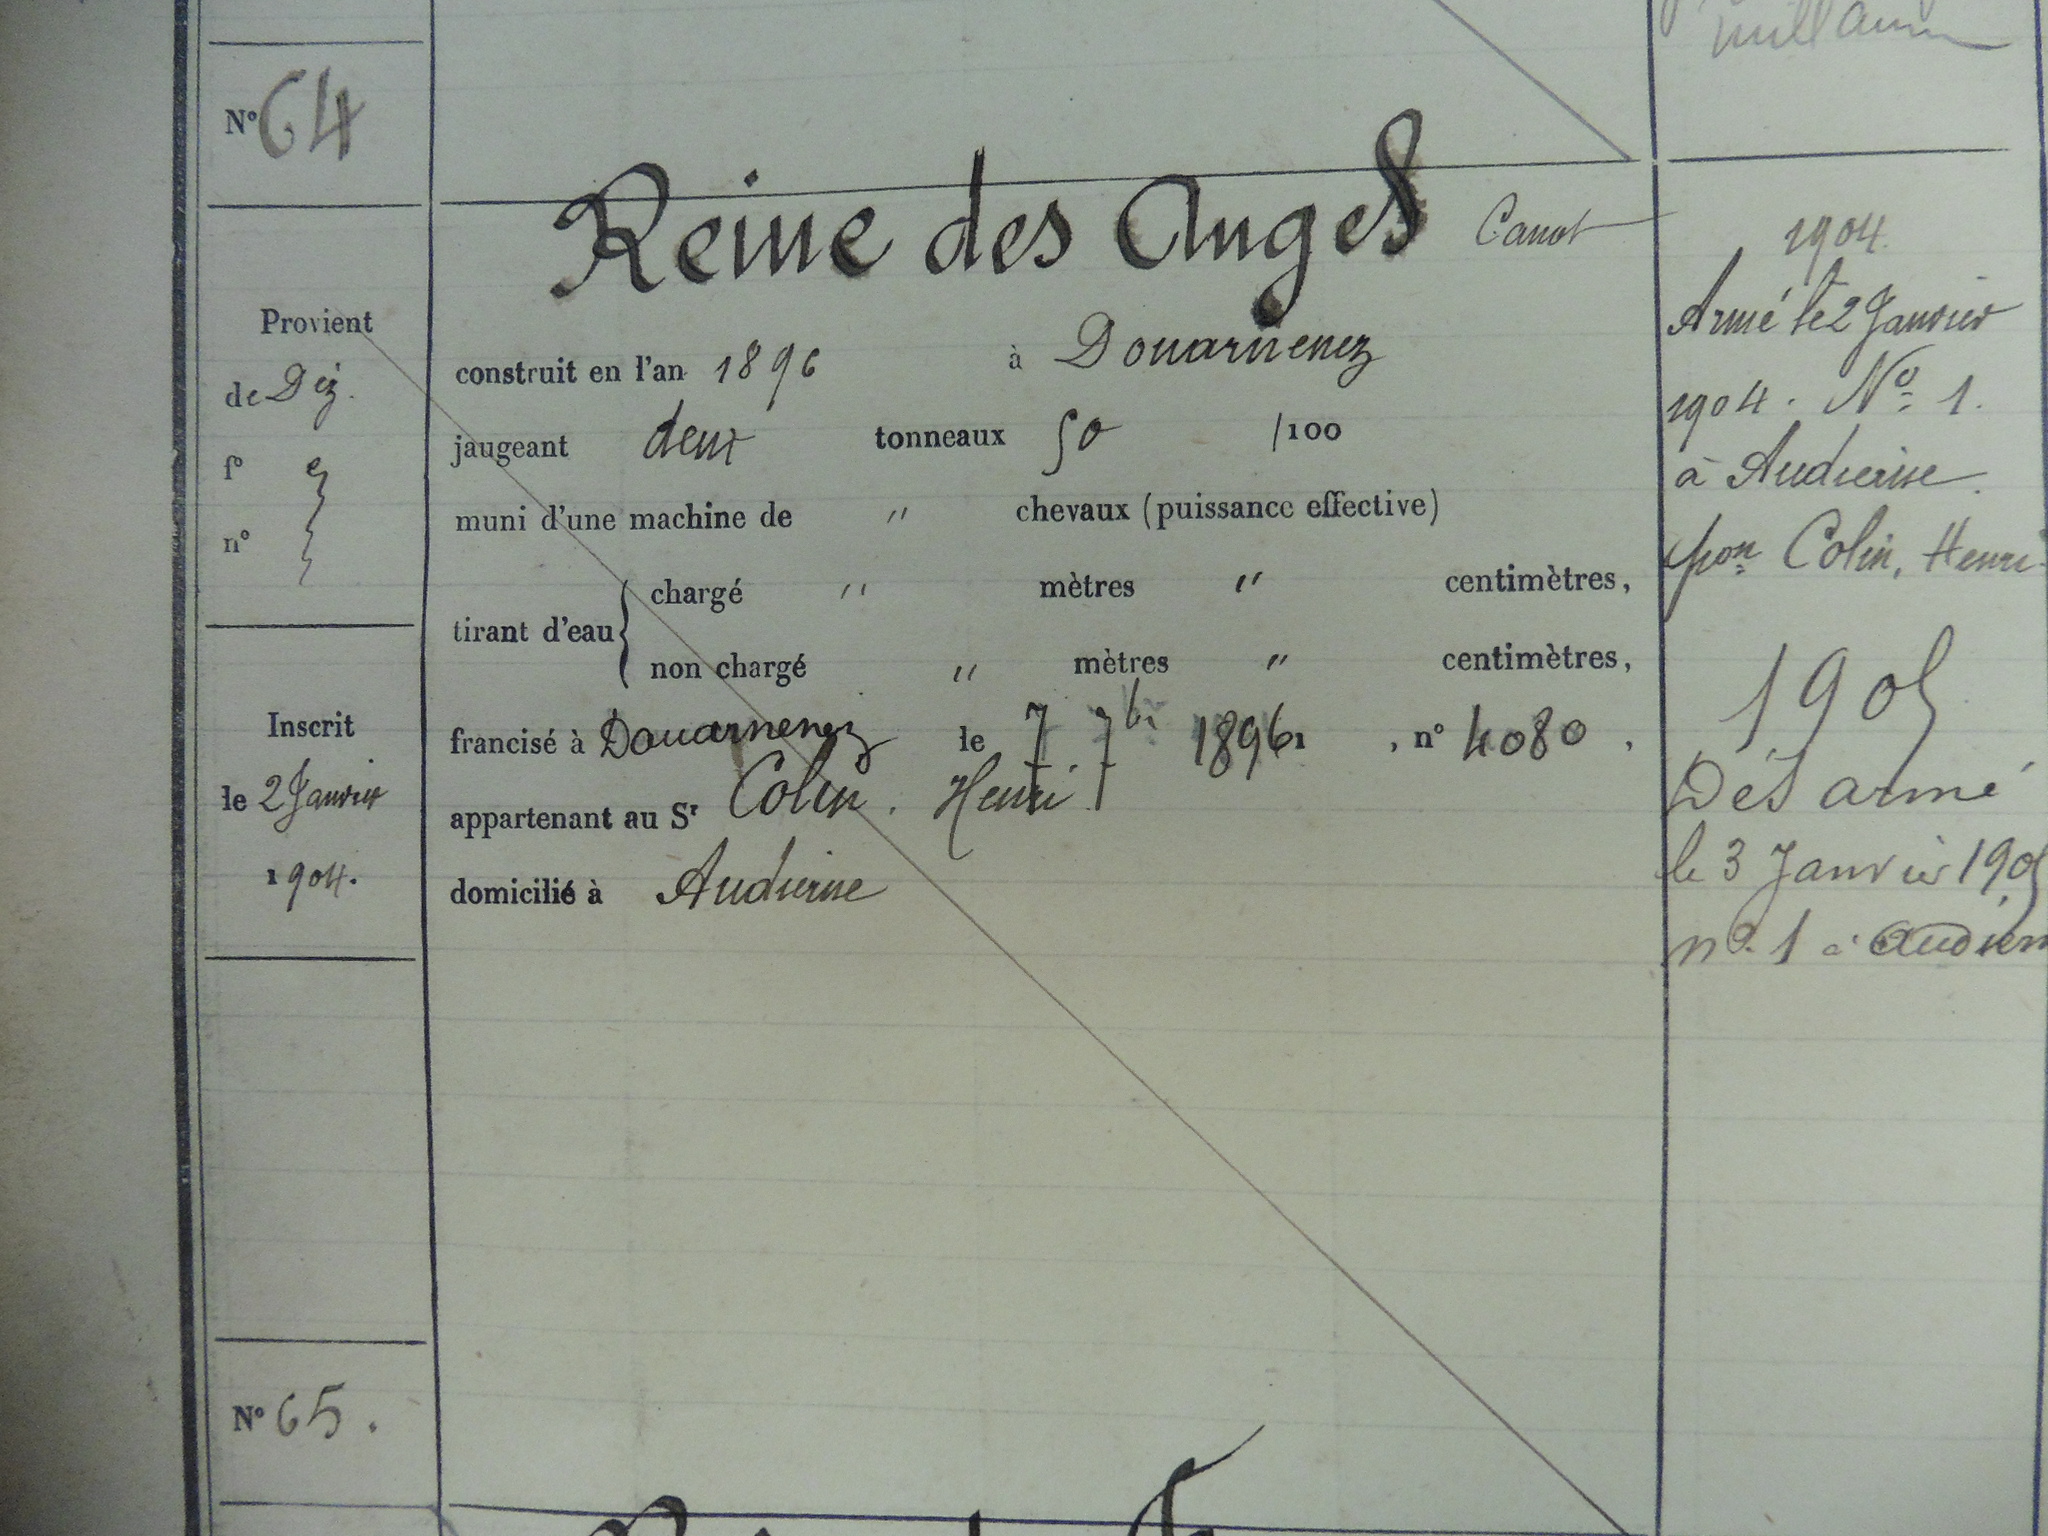 N° 64
Reine des Anges Canot
Provient
de Dez.
f°
n°
Inscrit
le 2 Janvier
1904.
construit en l'an 1896 à Douarnenez
jaugeant deux tonneaux 50 /100
muni d'une machine de " chevaux (puissance effective)
tirant d'eau { chargé " mètres " centimètres,
non chargé " mètres " centimètres,
francisé à Douarnenez le 7 7bre 1896 , n° 4080 ,
appartenant au Sr Colin. Henri
domicilié à Audierne
1904.
Armé le 2 Janvier
1904. No 1.
à Audierne.
pon Colin, Henri
1905
Désarmé
le 3 Janvier 1905
no 1 à Audiern
N° 65.